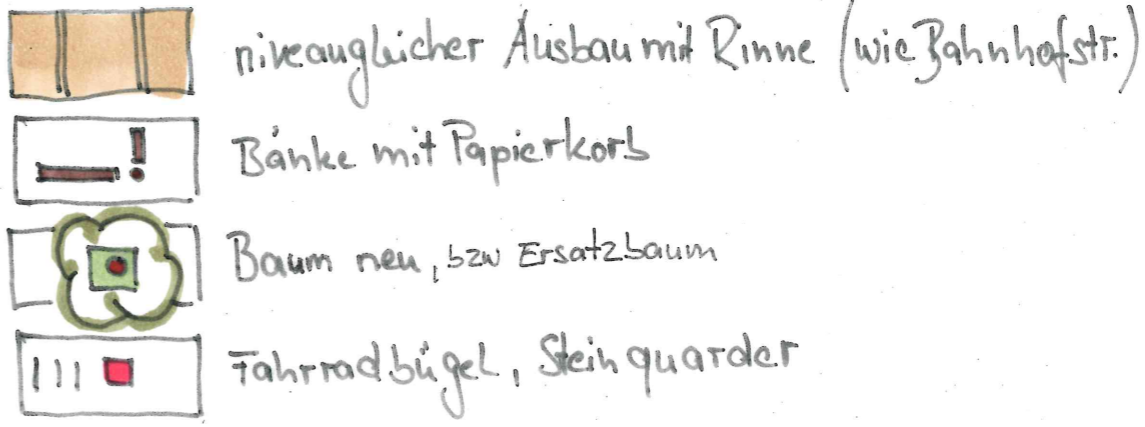 niveaugleicher Ausbau mit Rinne (wie Bahnhofstr.)
Bänke mit Papierkorb
Baum neu, bzw Ersatzbaum
Fahrradbügel, Steinquarder